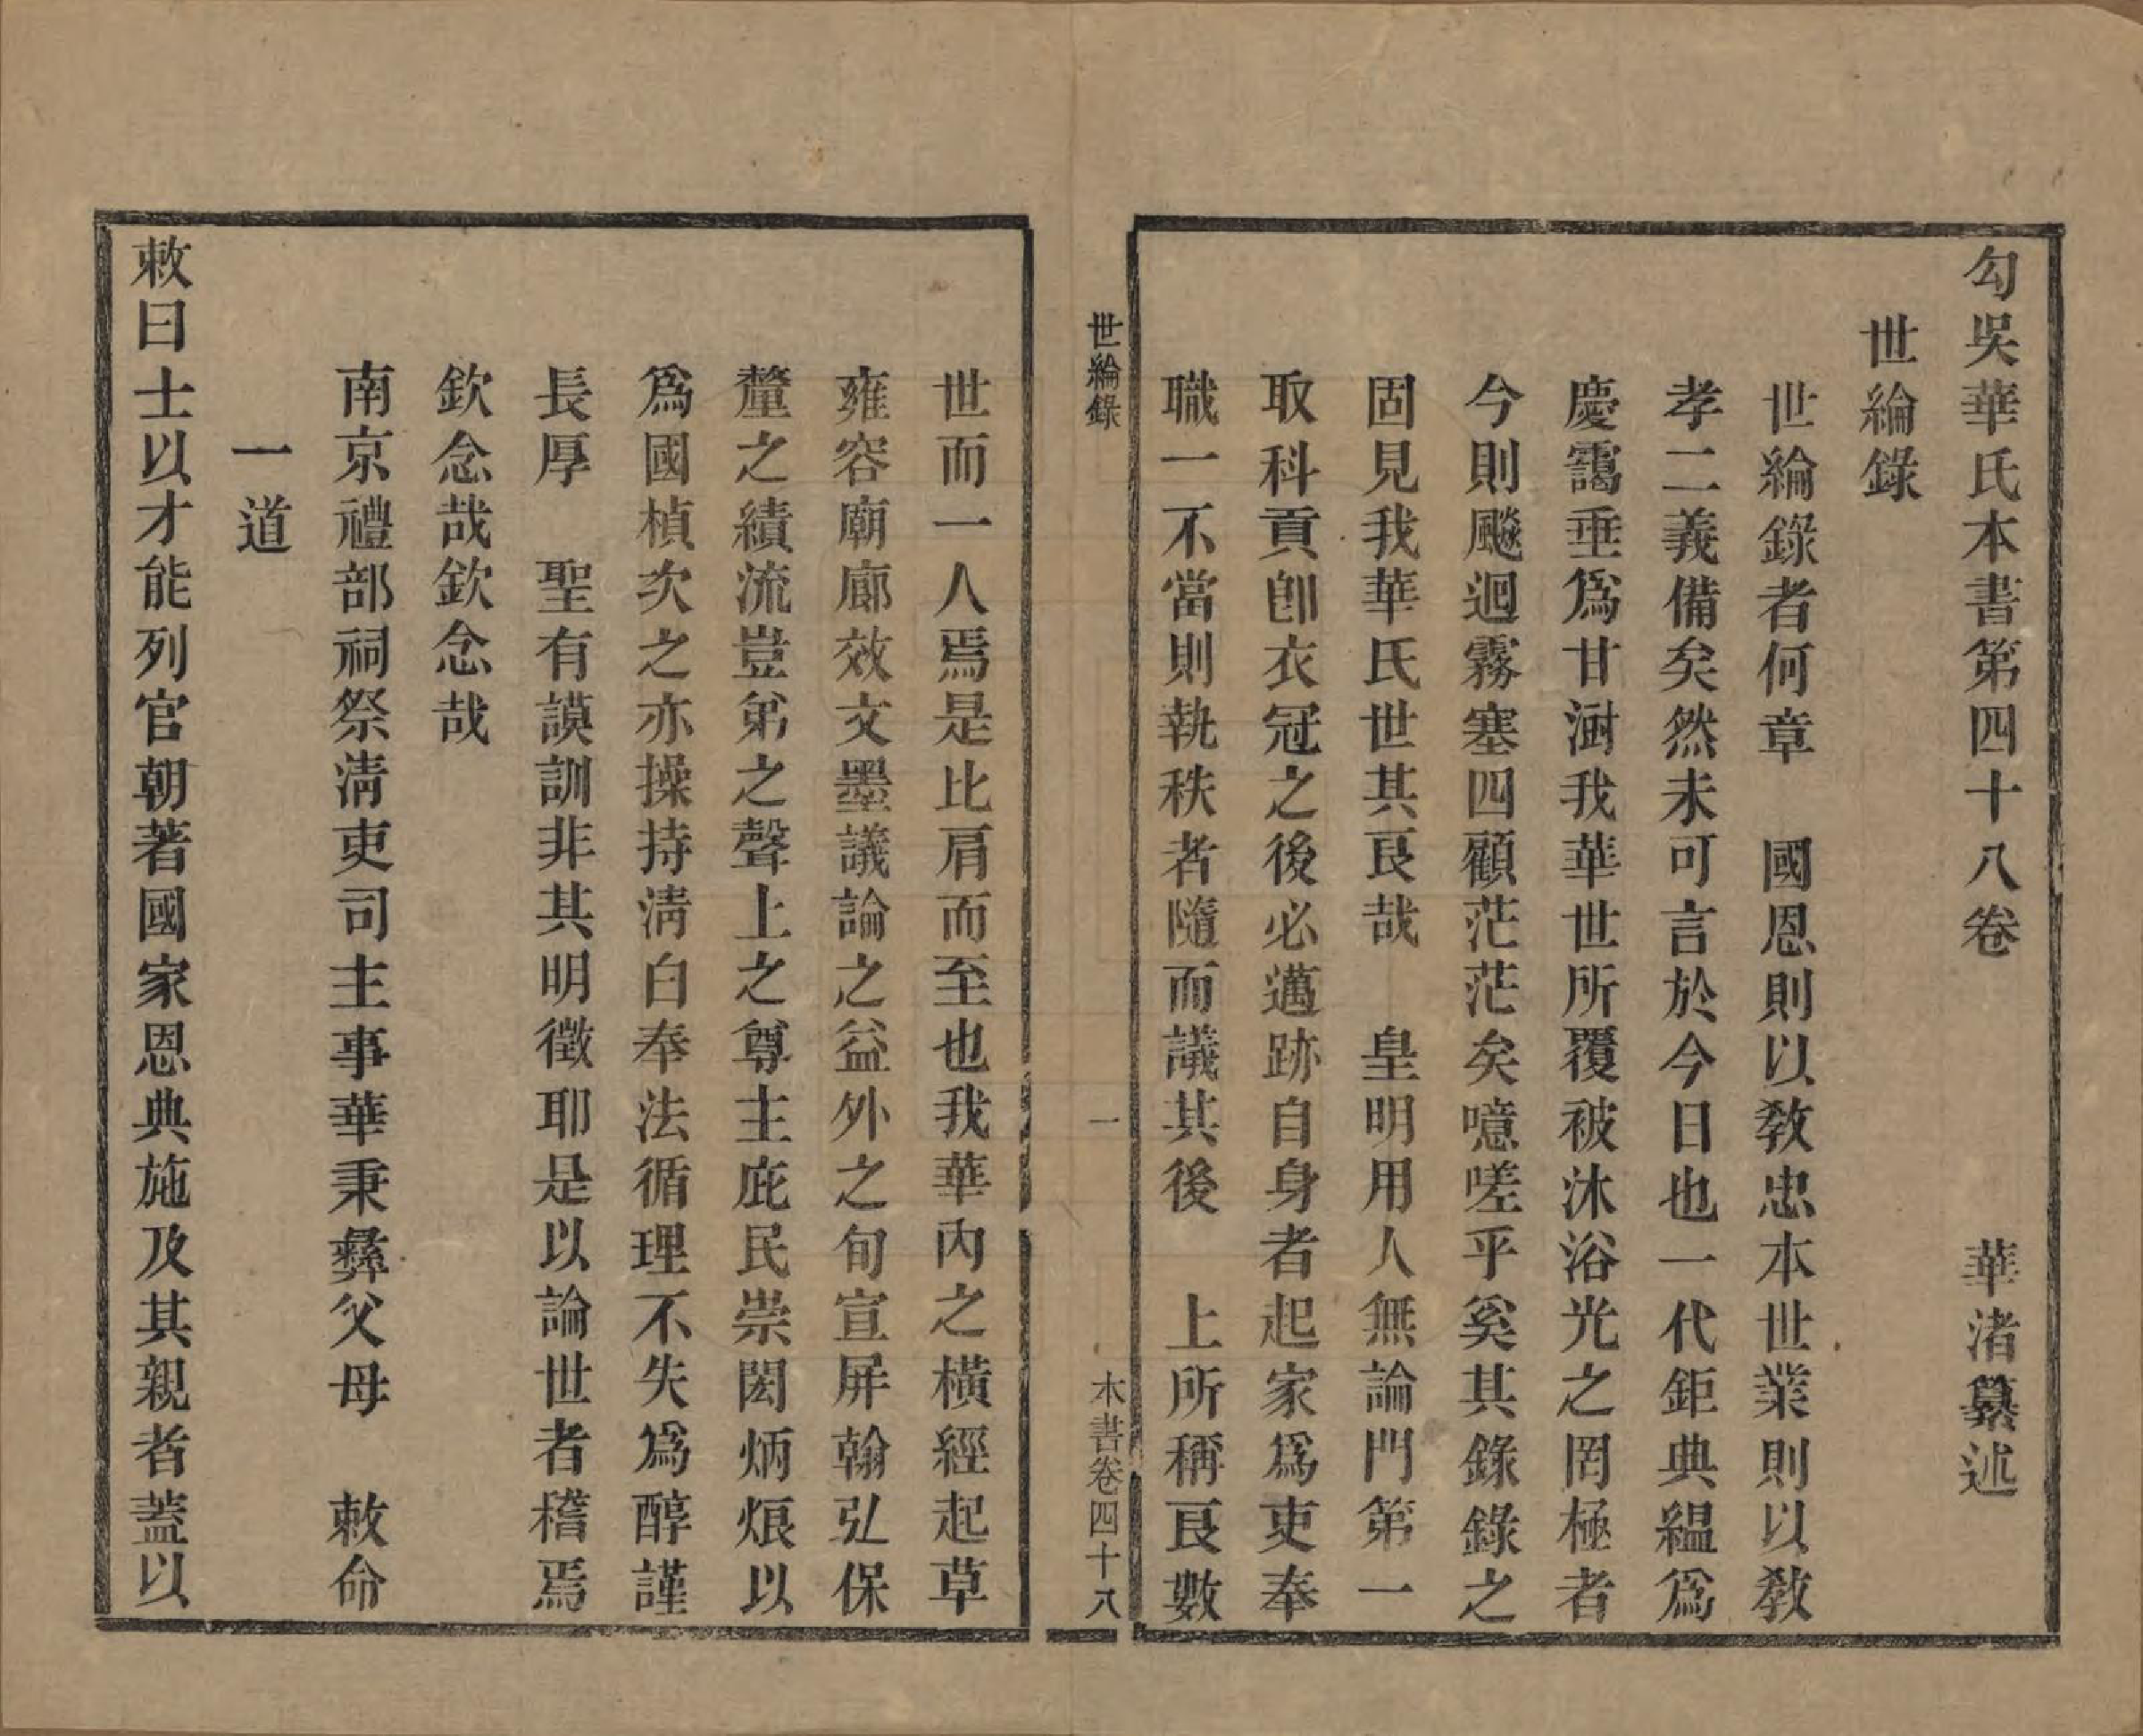 勾吳華氏本書第四十八卷　華渚纂述
世綸錄
世綸錄者何章　國恩則以敎忠本世業則以敎
孝二義備矣然未可言於今日也一代鉅典縕爲
慶靄垂爲甘澍我華世所覆被沐浴光之罔極者
今則飈迴霧塞四顧茫茫矣噫嗟乎奚其錄錄之
固見我華氏世其良哉　皇明用人無論門第一
取科貢卽衣冠之後必邁跡自身者起家爲吏奉
職一不當則執秩者隨而議其後　上所稱良數
世綸錄　一　本書卷四十八
世而一人焉是比肩而至也我華內之橫經起草
雍容廟廊效文墨議論之益外之旬宣屏翰弘保
釐之績流豈弟之聲上之尊主庇民崇閎炳烺以
爲國楨次之亦操持淸白奉法循理不失爲醇謹
長厚　聖有謨訓非其明徵耶是以論世者稽焉
欽念哉欽念哉
南京禮部祠祭淸吏司主事華秉彝父母　敕命
一道
敕曰士以才能列官朝著國家恩典施及其親者蓋以